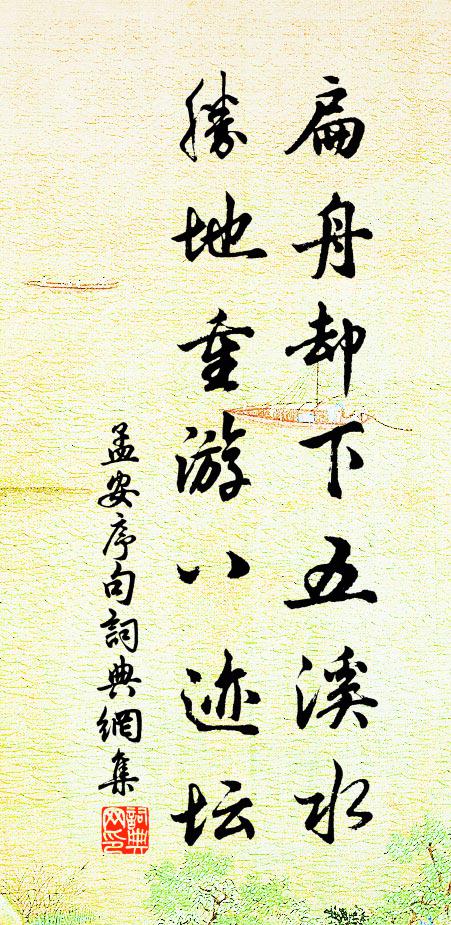 扁舟却下五溪水
勝地重游八迹坛
孟安序句詞典網集
詞典网印